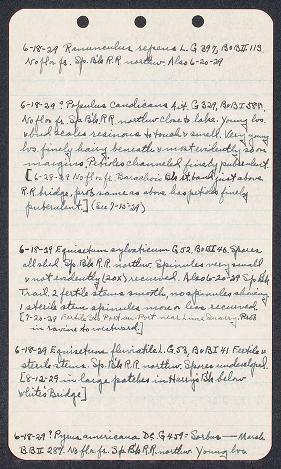 6-18-29 Ranunculus repens L. G 397, B&B II 113
No flor fr. Sp. Bk R.R. northw. Also 6-20-29
6-18-29 ? Populus candicans Ait. G 329, B&B I 588.
No flor fr. Sp. Bk R.R. northw. close to lake. Young lvs
& bud scales resinous to touch & smell. Very young
lvs. finely hairy beneath & most evidently so on
margins. Petioles channeled, finely puberulent.
[6-28-29 No flor fr. Barachois stand just above
R.R. bridge, prob. same as above has petioles finely
puberulent.] (See 7-15-29)
6-18-29 Equisetum sylvaticum G 52, B&B I 40. Spores
all shed. Sp. Bk R.R. northw. Spinules very small
& not evidently (20x) recurved. Also 6-20-29 Sp. Bk
Trail. 2 fertile stems smooth, no spinules showing
1 sterile stem spinules more or less recurved.
[7-20-29 Fertile Port au Port near Lime Quarry. Prob
in ravine to westward]
6-18-29 Equisetum fluviatile L. G 53, B&B I 41 Fertile &
sterile stems. Sp. Bk R.R. northw. Spores undeveloped.
[8-12-29 in large patches in Harry's Bk below
White's Bridge]
6-18-29 ? Pyrus americana DC. G 459 = Sorbus — Marsh
B&B II 287. No flor fr. Sp. Bk R.R. northw. Young lvs